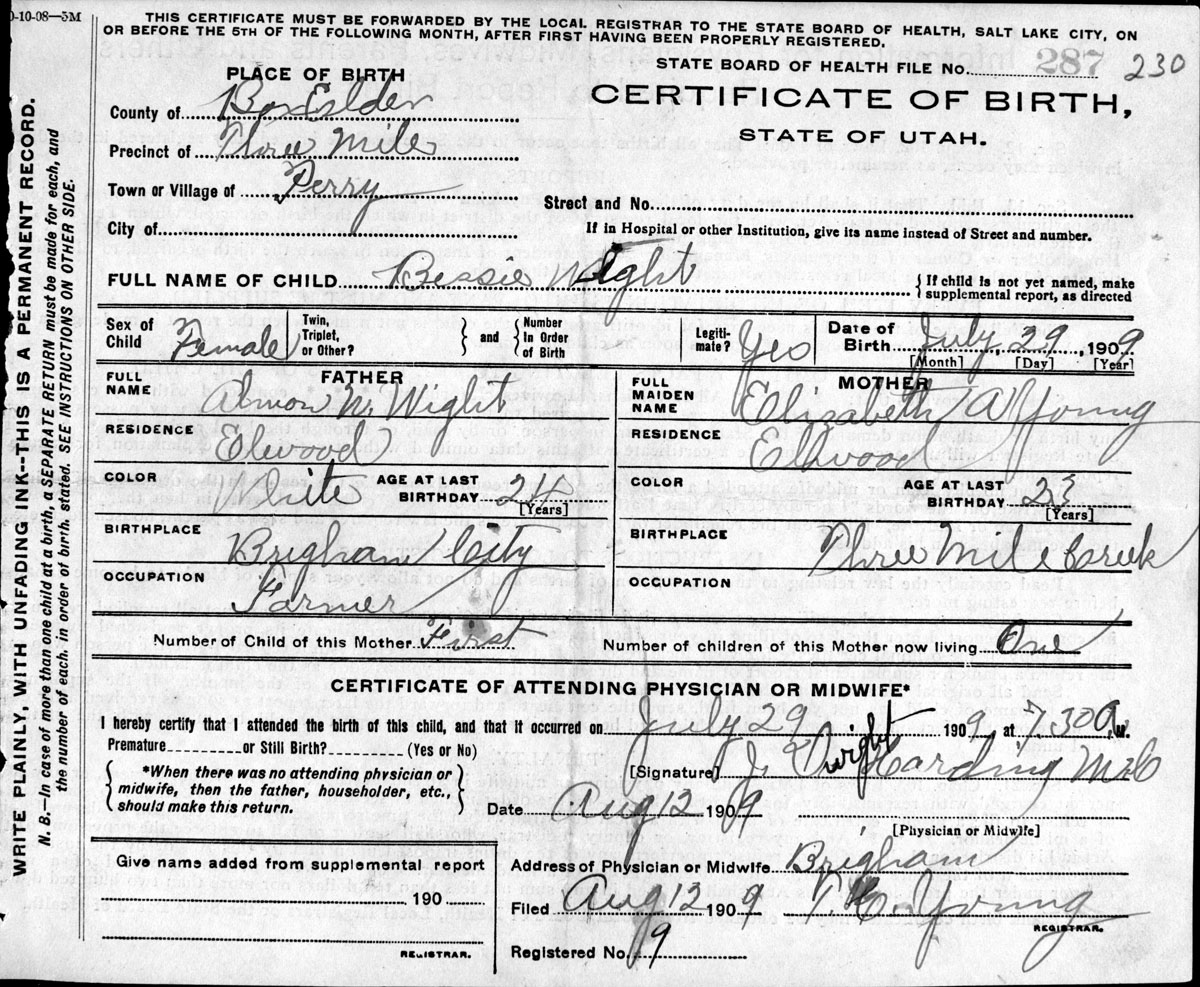 0-10-08—5M
THIS CERTIFICATE MUST BE FORWARDED BY THE LOCAL REGISTRAR TO THE STATE BOARD OF HEALTH, SALT LAKE CITY, ON
OR BEFORE THE 5TH OF THE FOLLOWING MONTH, AFTER FIRST HAVING BEEN PROPERLY REGISTERED.
STATE BOARD OF HEALTH FILE No. 287 230
PLACE OF BIRTH
CERTIFICATE OF BIRTH,
STATE OF UTAH.
County of Box Elder
Precinct of Three Mile
Town or Village of Perry
Street and No.
City of
If in Hospital or other Institution, give its name instead of Street and number.
FULL NAME OF CHILD Bessie Wight
{If child is not yet named, make
supplemental report, as directed
Sex of Child Female
Twin, Triplet, or Other? } and { Number In Order of Birth
Legitimate? Yes
Date of Birth July, 29, 1909
[Month] [Day] [Year]
FATHER
MOTHER
FULL NAME Almon W. Wight
FULL MAIDEN NAME Elizabeth A Young
RESIDENCE Elwood
RESIDENCE Elwood
COLOR White AGE AT LAST BIRTHDAY 24 [Years]
COLOR AGE AT LAST BIRTHDAY 23 [Years]
BIRTHPLACE Brigham City
BIRTHPLACE Three Mile Creek
OCCUPATION Farmer
OCCUPATION
Number of Child of this Mother First
Number of children of this Mother now living One
CERTIFICATE OF ATTENDING PHYSICIAN OR MIDWIFE*
I hereby certify that I attended the birth of this child, and that it occurred on July 29 1909 at 7.30 a, M.
Premature or Still Birth? (Yes or No)
{ *When there was no attending physician or
midwife, then the father, householder, etc.,
should make this return. }
[Signature] J. Dwight Harding
Date Aug 12 1909
[Physician or Midwife]
Give name added from supplemental report
190
REGISTRAR.
Address of Physician or Midwife Brigham
Filed Aug 12 1909 Young
REGISTRAR.
Registered No. 9
WRITE PLAINLY, WITH UNFADING INK---THIS IS A PERMANENT RECORD.
N. B.—In case of more than one child at a birth, a SEPARATE RETURN must be made for each, and
the number of each, in order of birth, stated. SEE INSTRUCTIONS ON OTHER SIDE.